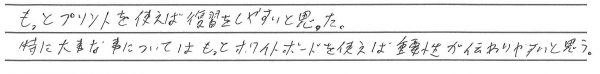 もっとプリントを使えば復習をしやすいと思った。
特に大事な事についてはもっとホワイトボードを使えば重要性が伝わりやすいと思う。